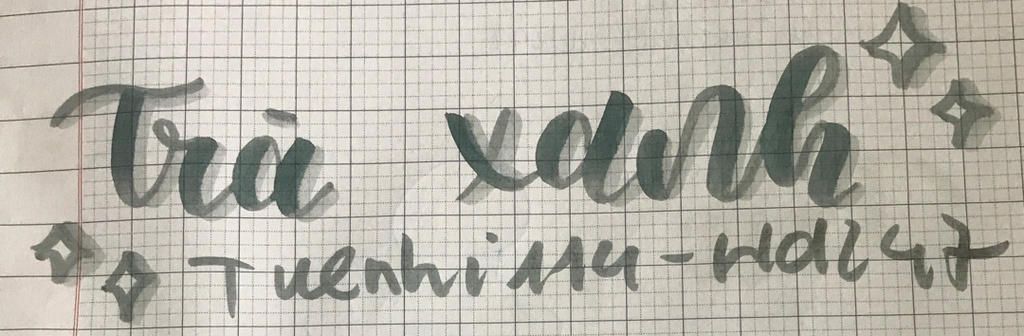 Trà xanh
Tuenhi114-Hdz47